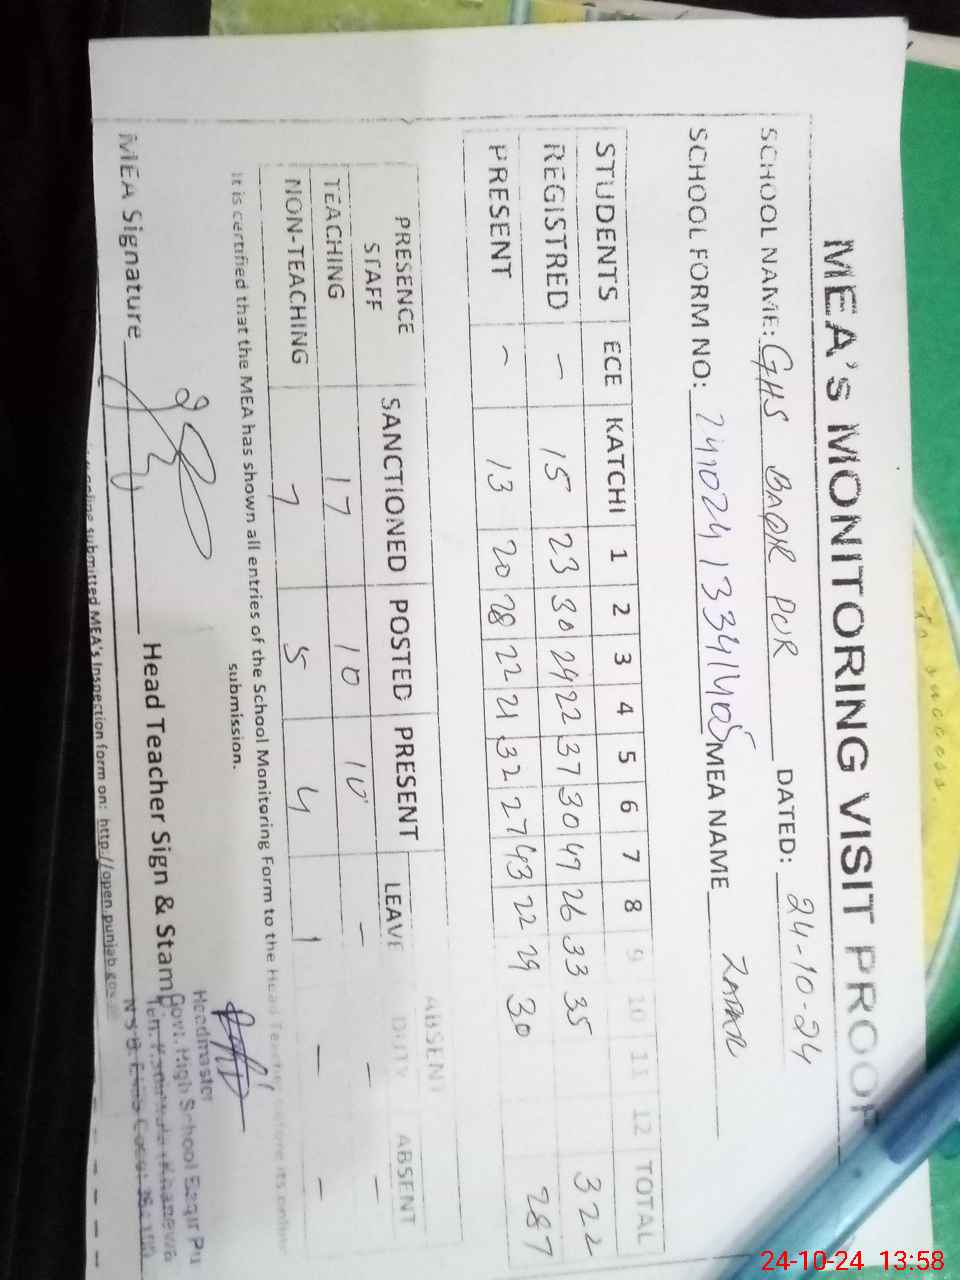 MEA's MONITORING VISIT PROOF
SCHOOL NAME: GHS BAQIR PUR DATED: 24-10-24
SCHOOL FORM NO: MEA NAME
STUDENTS ECE KATCHI 1 2 3 4 5 6 7 8 9 10 11 12 TOTAL
REGISTRED – 15 23 30 24 22 37 30 49 26 33 35 322
PRESENT – 13 20 28 22 21 32 27 43 22 29 30 287
PRESENCE STAFF SANCTIONED POSTED PRESENT LEAVE ABSENT DUTY ABSENT
TEACHING 17 10 10 – – –
NON-TEACHING 7 5 4 1 – –
It is certified that the MEA has shown all entries of the School Monitoring Form to the Head Teacher before its online
submission.
MEA Signature Head Teacher Sign & Stamp
Headmaster
Govt. High School Baqir Pu
submitted MEA's Inspection form on: http://open.punjab.gov
To success.
24-10-24 13:58